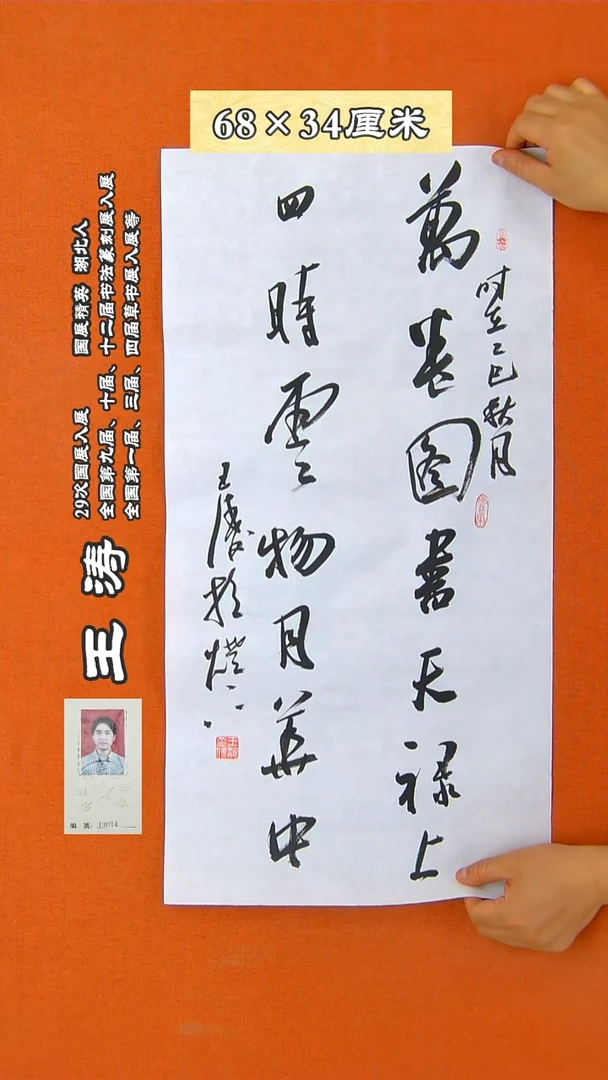 68×34厘米
萬卷图書天禄上
時在乙巳秋月
四時雲物月華中
王涛於燈下
王涛
29次国展入展 国展精英 湖北人
全国第九届、十届、十二届书法篆刻展入展
全国第一届、三届、四届草书展入展等